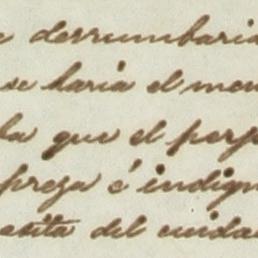 e derrumbaria
se haria el men
la que el perp
preza é indign
esita del cuida